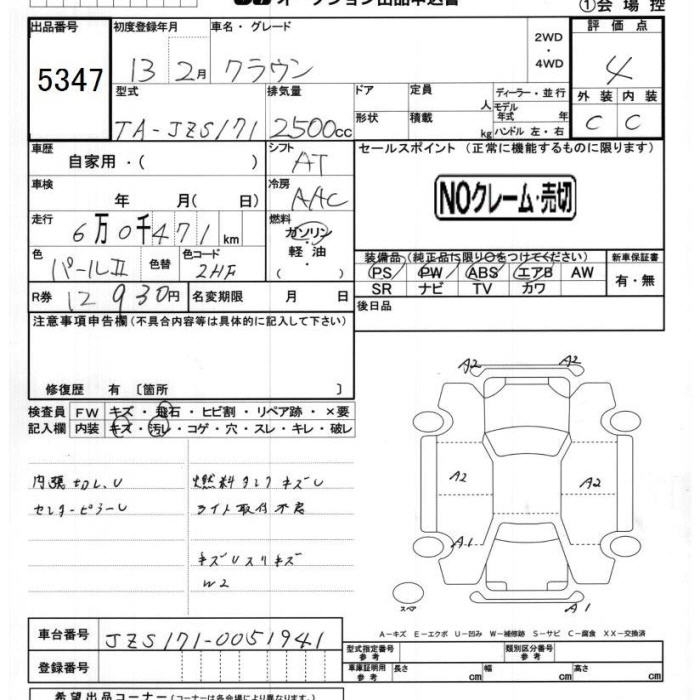 オークション出品申込書
①会場控
出品番号 初度登録年月 車名・グレード 2WD ・ 4WD 評価点
5347 13 2月 クラウン 4
型式 排気量 ドア 定員 人 ディーラー・並行 外装 内装
TA-JZS171 2500cc 形状 積載 kg モデル年式 年 ハンドル 左・右 C C
車歴 自家用・( ) シフト AT セールスポイント (正常に機能するものに限ります)
車検 年 月(日) 冷房 AAC NOクレーム・売切
走行 6万0千471km 燃料 ガソリン・軽油 ( )
色 パールII 色替 色コード 2HF 装備品(純正品に限り○をつけてください) 新車保証書
PS PW ABS エアB AW 有・無
SR ナビ TV カワ
R券 12930円 名変期限 月 日 後日品
注意事項申告欄(不具合内容等は具体的に記入して下さい)
修復歴 有 〔箇所 〕
検査員 FW キズ・飛石・ヒビ割・リペア跡・×要
記入欄 内装 キズ・汚レ・コゲ・穴・スレ・キレ・破レ
内張切レ、U 燃料タンクキズU
センターピラーU ライト取付不良
キズUスリキズ
W2
A2 A2
A2 A2
A1
A1
スペア
A-キズ E-エクボ U-凹み W-補修跡 S-サビ C-腐食 XX-交換済
車台番号 JZS171-0051941
型式指定番号 参考 類別区分番号 参考
登録番号 車庫証明用 参考 長さ cm 幅 cm 高さ cm
希望出品コーナー(各会場により異なります)